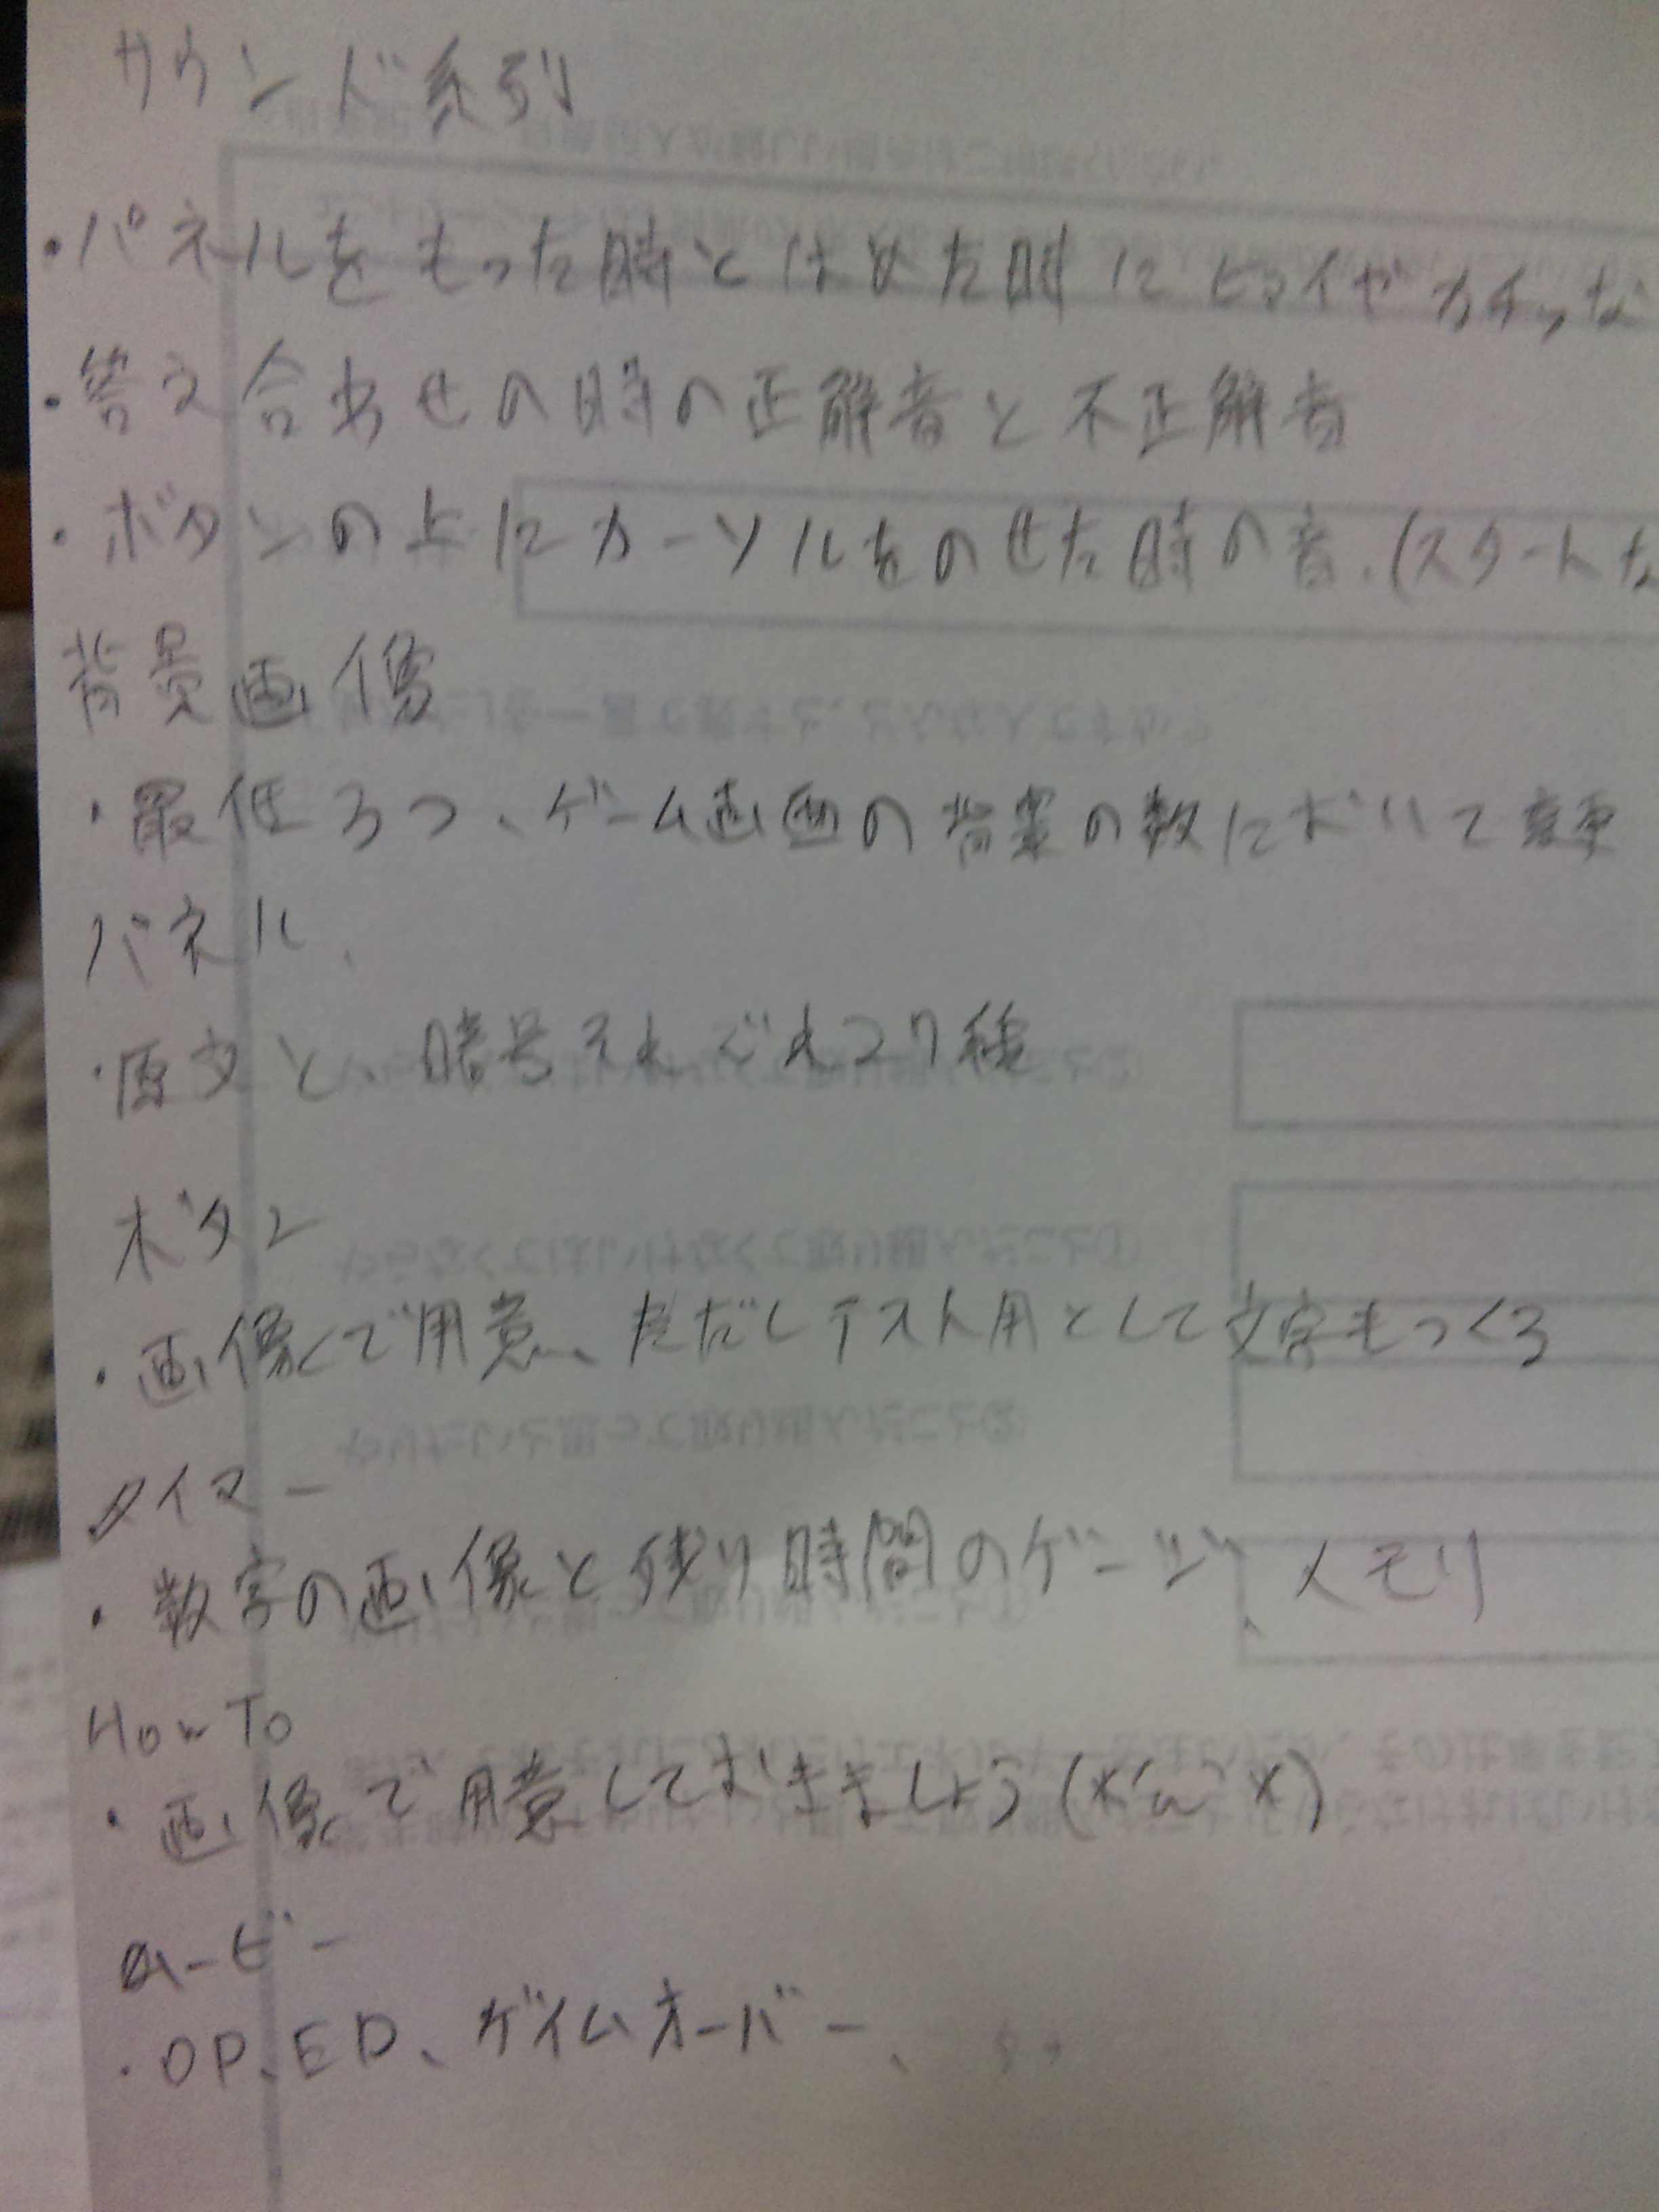 サウンド系列
・パネルをもった時とはめた時にヒョイやカチッな
・答え合わせの時の正解音と不正解音
・ボタンの上にカーソルをのせた時の音.(スタートな
背景画像
・最低3つ、ゲーム画面の背景の数において変更
パネル、
・原文と、暗号それぞれ27種
ボタン
・画像で用意、ただしテスト用として文字もつくる
タイマー
・数字の画像と残り時間のゲージ、メモリ
HowTo
・画像で用意しておきましょう
ムービー
・OP、ED、ゲイムオーバー、